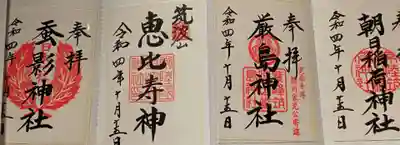 朝日稲荷神社
令和四年十月十五日
奉拝
厳島神社
令和四年十月十五日
筑波山
恵比寿神
令和四年十月十五日
奉拝
蚕影神社
令和四年十月十五日